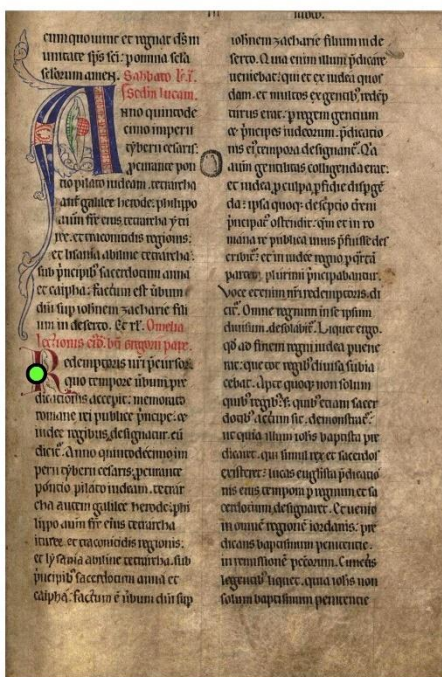 cum quo uiuit et regnat ds in
unitate sps sci. p omnia scla
sclorum amen. Sabbato
Sedm lucam.
Anno quintode
cimo imperii
tyberii cesaris.
pcurante pon
tio pilato iudeam. tetrarcha
aut galilee herode. philippo
autm fre eius tetrarcha
et traconitidis regionis.
et lisania abiline tetrarcha.
sub pncipib sacerdotum anna
et caipha. factum est ubum
dni sup iohnem zacharie fili
um in deserto. Et rl. Omelia
lectionis eid. bi gregorii pape.
Redemptoris nri pcursor
quo tempore ubum pre
dicationis accepit. memorato
romane rei publice pncipe. et
iudee regibus designatur. cu
dicit. Anno quintodecimo im
perii tyberii cesaris. pcurante
pontio pilato iudeam. tetrar
cha autem galilee herode. phi
lippo autm fre eius tetrarcha
ituree. et traconitidis regionis.
et lysania abiline tetrarcha. sub
pncipib sacerdotum anna et
caipha. factum e ubum dni sup
iohnem zacharie filium in de
serto. Quia enim illum pdicare
ueniebat. qui et ex iudea quos
dam. et multos ex gentib redep
turus erat. p regem gentium
et pncipes iudeorum. pdicatio
nis ei tempora designant. Qa
autm gentilitas colligenda erat.
et iudea p culpa pfidie dispge
da. ipsa quoq descptio treni
pncipat ostendit. qm et in ro
mana re publica unus pfuisse des
cribit. et in iudee regno p qrta
parte. plurimi pncipabantur.
Voce etenim nri redemptoris di
cit. Omne regnum in se ipsum
diuisum. desolabit. Liquet ergo.
qd ad finem regni iudea puene
rat. que tot regib diuisa subia
cebat. Apte quoq non solum
quib regib. s quib etiam sacer
dotib actum sit. demonstrat.
ut quia illum iohs baptista pre
dicaret. qui simul rex et sacerdos
existeret. lucas euglista pdicatio
nis eius tempora p regnum et sa
cerdotium designaret. Et uenit
in omne regione iordanis. pre
dicans baptismum penitentie
in remissione peccatorum. Cunctis
legentib liquet. quia iohs non
solum baptismum penitentie